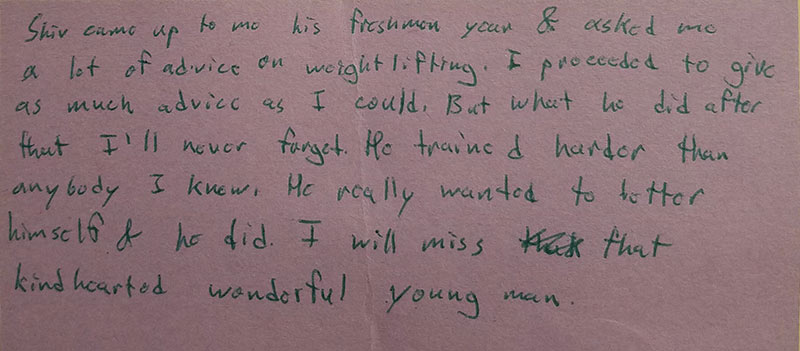 Shiv came up to me his freshmen year & asked me
a lot of advice on weightlifting. I proceeded to give
as much advice as I could. But what he did after
that I'll never forget. He trained harder than
anybody I knew. He really wanted to better
himself & he did. I will miss that
kindhearted wonderful young man.